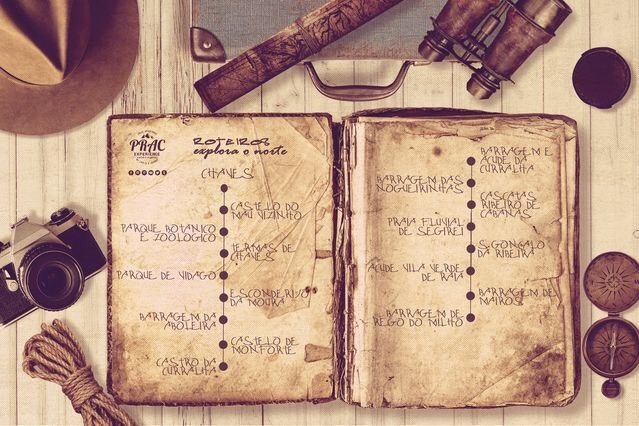 PRAC
EXPERIENCE
ROTEIROS
explora o norte
CHAVES
CASTELO DO
MAU VIZINHO
PARQUE BOTANICO
E ZOOLOGICO
TERMAS DE
CHAVES
PARQUE DE VIDAGO
ESCONDERIJO
DA MOURA
BARRAGEM DA
ABOLEIRA
CASTELO DE
MONFORTE
CASTRO DA
CURRALHA
BARRAGEM E
AÇUDE DA
CURRALHA
BARRAGEM DAS
NOGUEIRINHAS
CASCATAS
RIBEIRO DE
CABANAS
PRAIA FLUVIAL
DE SEGIREI
S. GONÇALO
DA RIBEIRA
AÇUDE VILA VERDE
DE RAIA
BARRAGEM DE
MAIROS
BARRAGEM DE
REGO DO MILHO